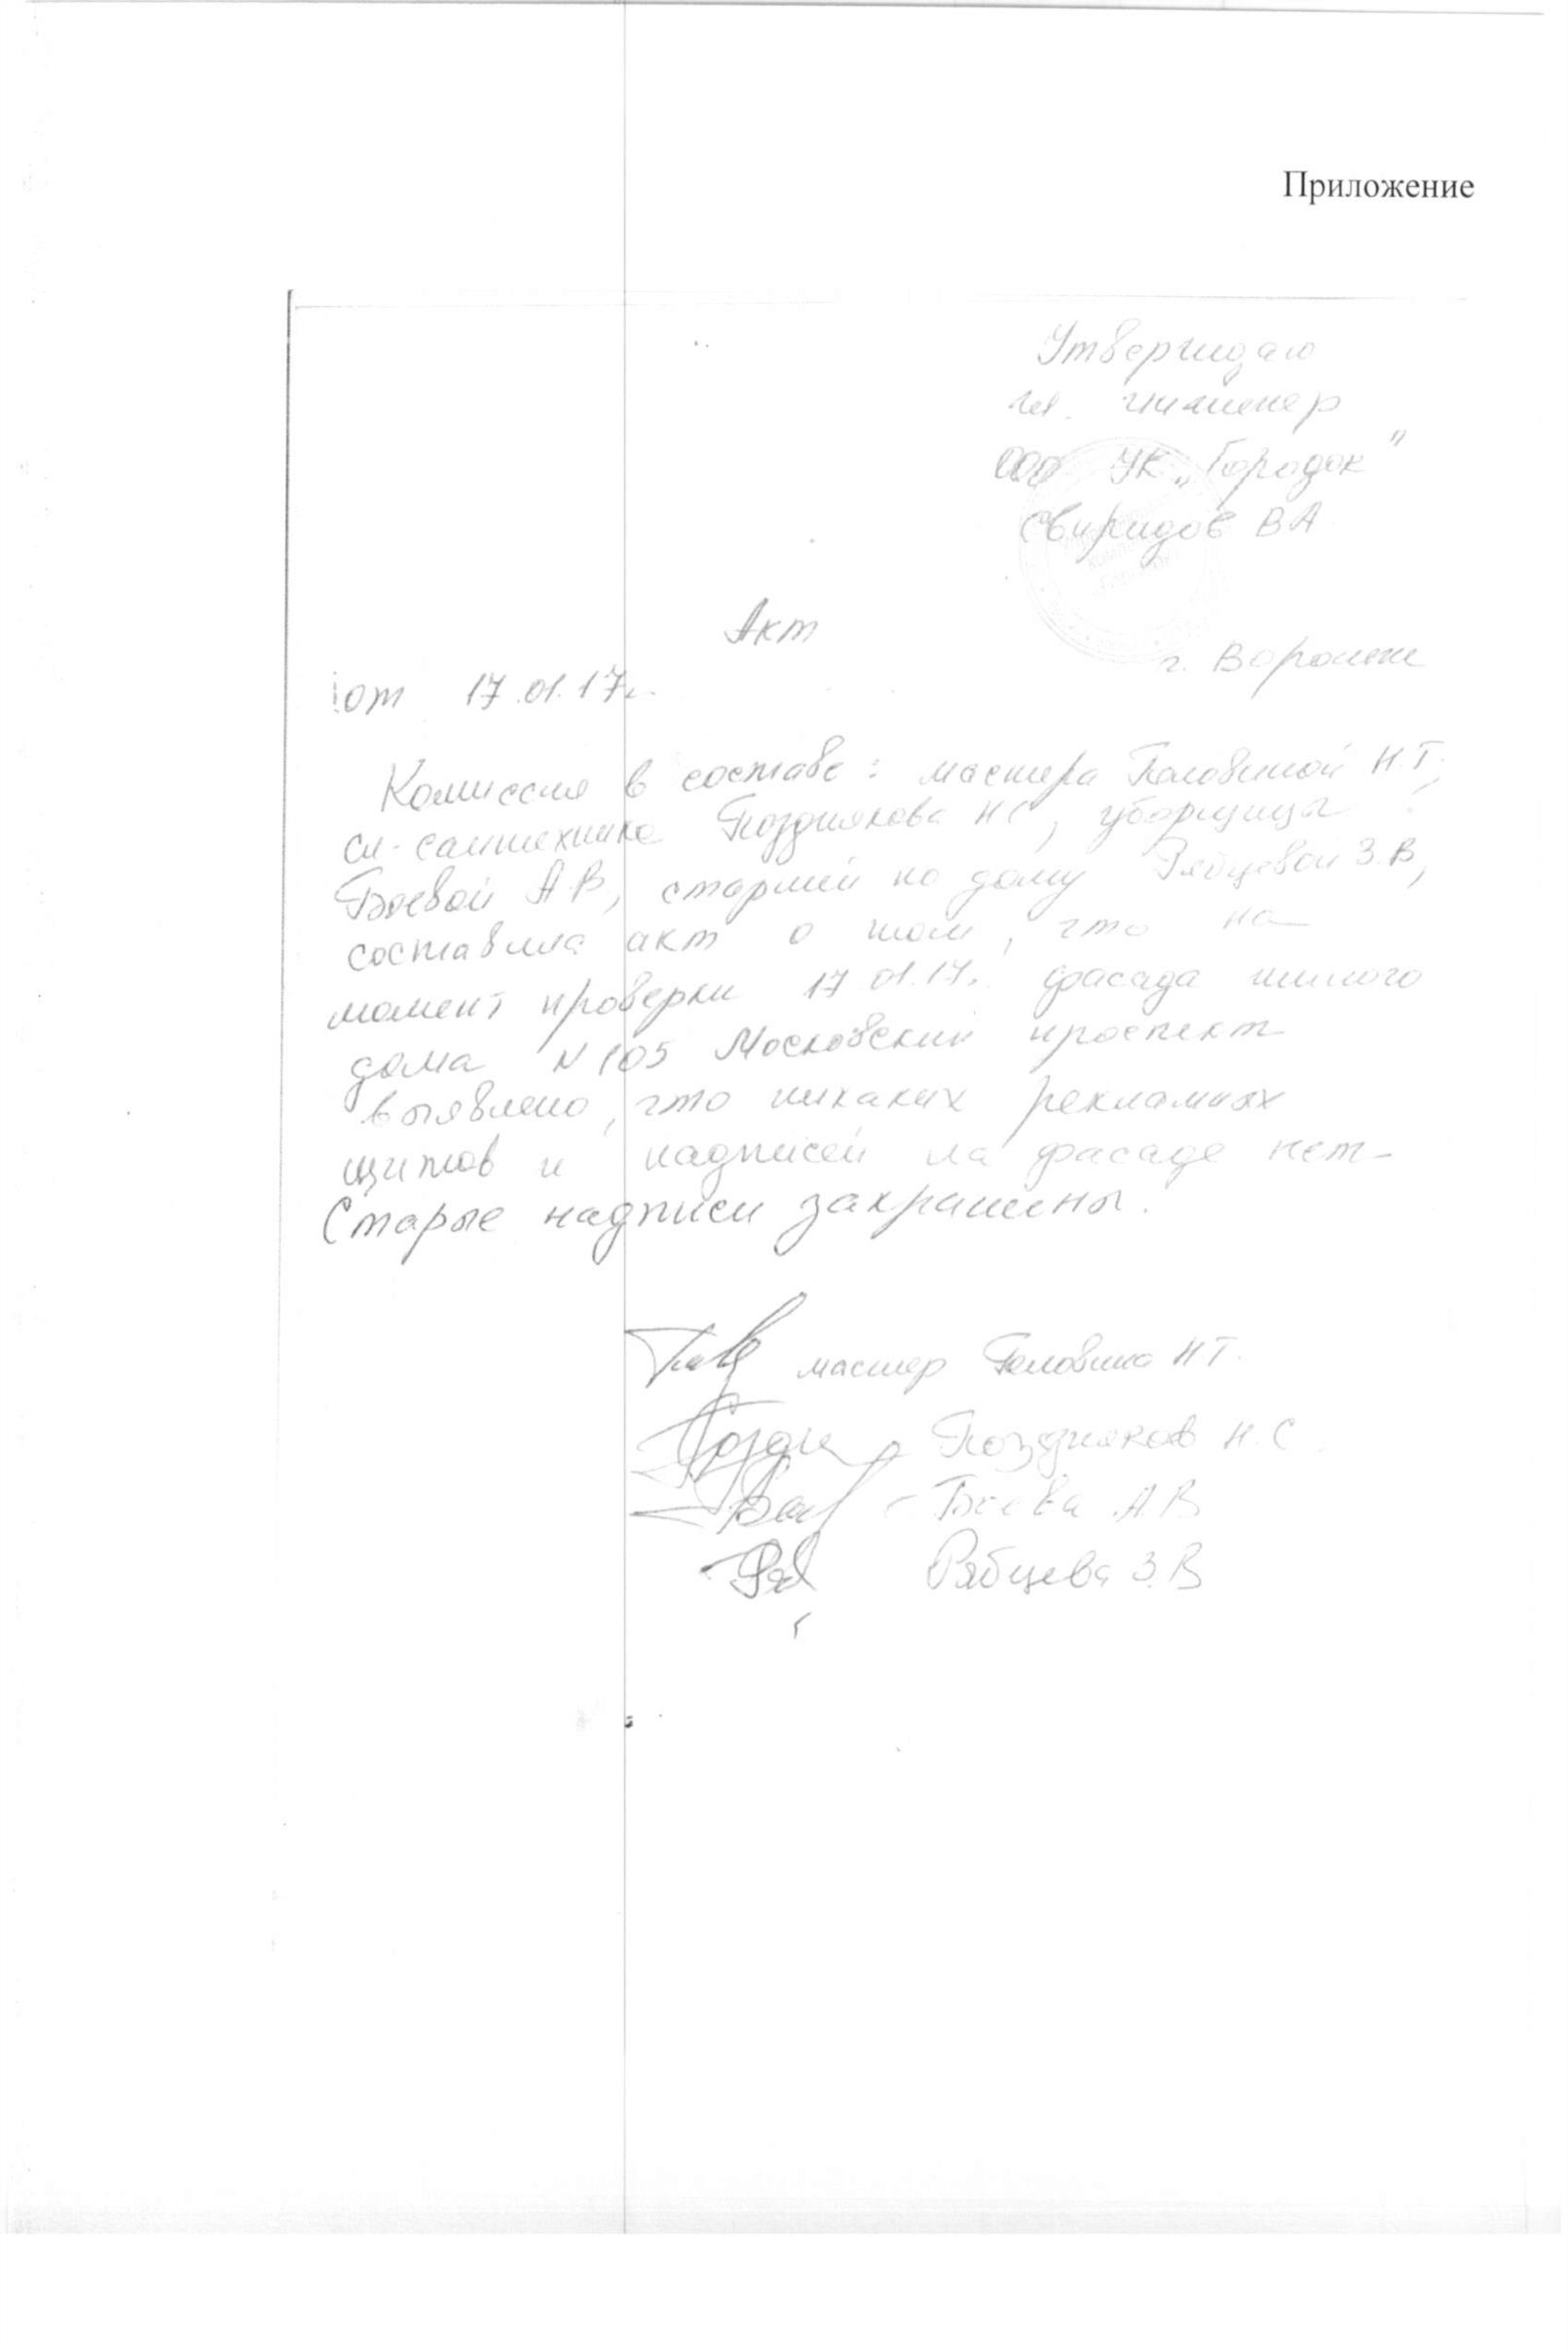 Приложение
Утверждаю
гл. инженер
ООО УК „Городок"
Свиридов ВА
Акт
г. Воронеж
от 17.01.17г.
Комиссия в составе: мастера Головиной Н.Т,
сл-сантехника Позднякова НС, уборщицы
Боевой А.В, старшей по дому Рябцевой З.В,
составила акт о том, что на
момент проверки 17.01.17г. фасада жилого
дома N 105 Московский проспект
выявлено, что никаких рекламных
щитов и надписей на фасаде нет
Старые надписи закрашены.
мастер Головина НТ.
Поздняков Н.С.
Боева А.В
Рябцева З.В